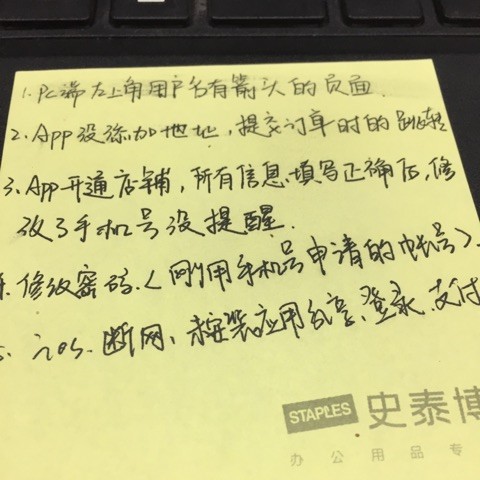 1. PC端左上角用户名有箭头的页面.
2. App没添加地址,提交订单时的跳转
3. App开通店铺,所有信息填写正确后,修
改了手机号没提醒.
4. 修改密码.(刚用手机号申请的帐号).
5. ios.断网、未安装应用分享、登录、支付
STAPLES 史泰博
办公用品专